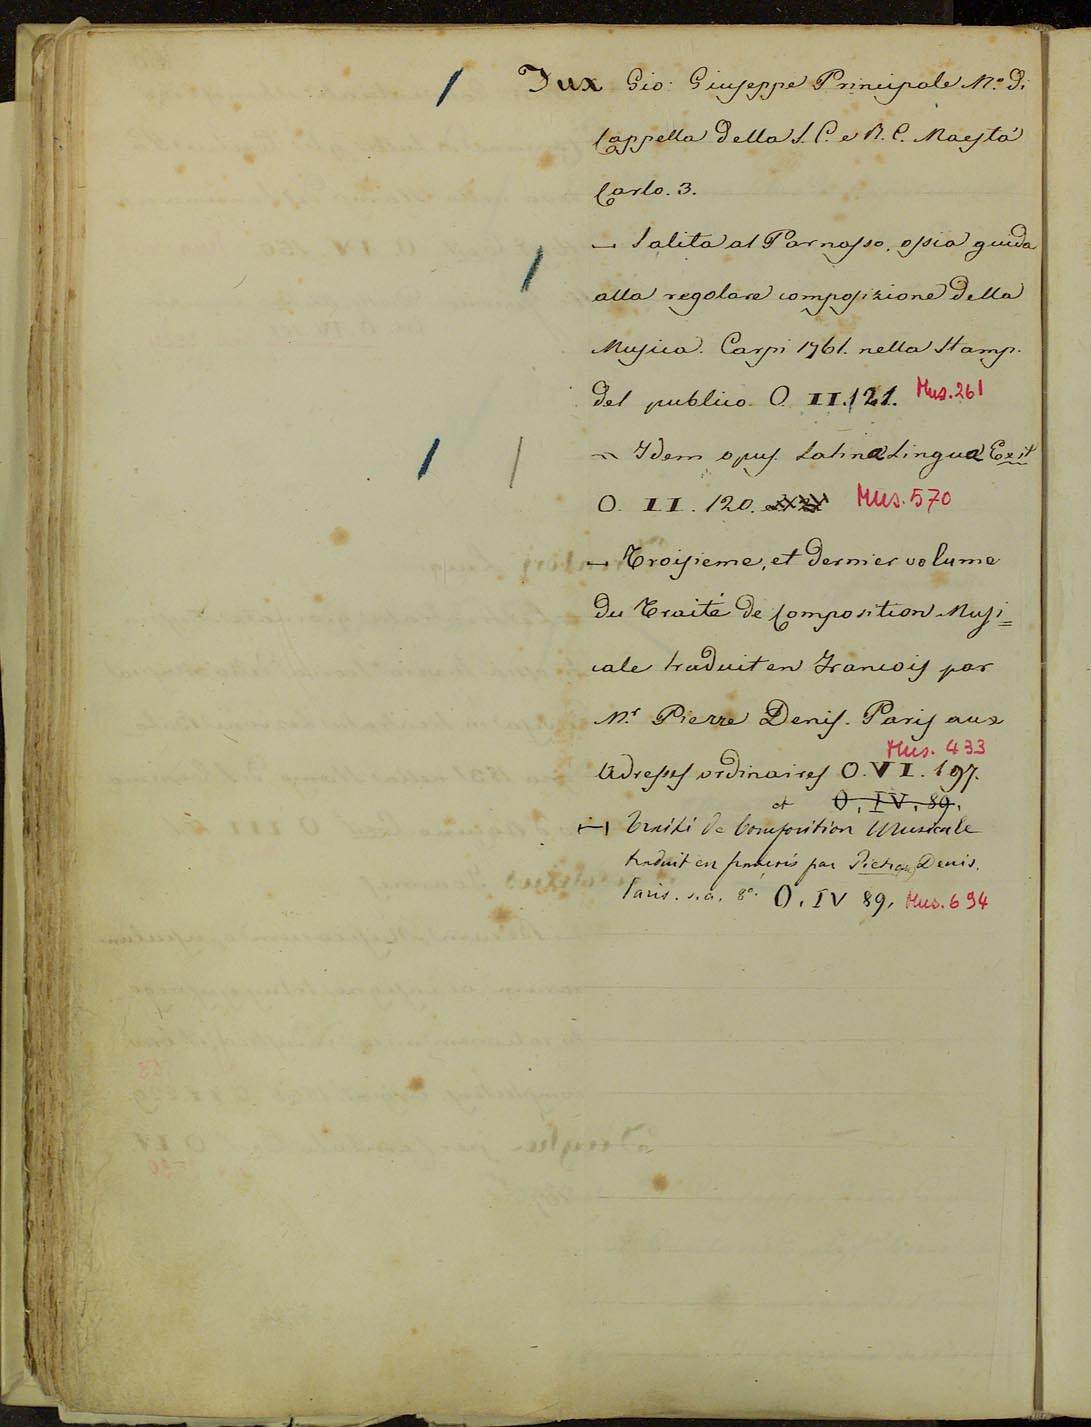 Fux Gio: Giuseppe Principale M.º di
Cappella della S. C. e R. C. Maestà
Carlo. 3.
— Salita al Parnasso, ossia guida
alla regolare composizione della
Musica. Carpi 1761. nella Stamp.
del publico O. II. 121. Mus. 261
— Idem opus Latina Lingua Exit
O. II. 120. Mus. 570
— Troisieme, et dernier volume
du Traité de Composition Musi=
cale traduit en Francois par
M.r Pierre Denis. Paris aux
Adresses ordinaires O. VI. 197. Mus. 433
et O. IV. 89.
— Traité de Composition Musicale
traduit en français par Pietro Denis.
Paris. s.a. 8º. O. IV 89, Mus. 694